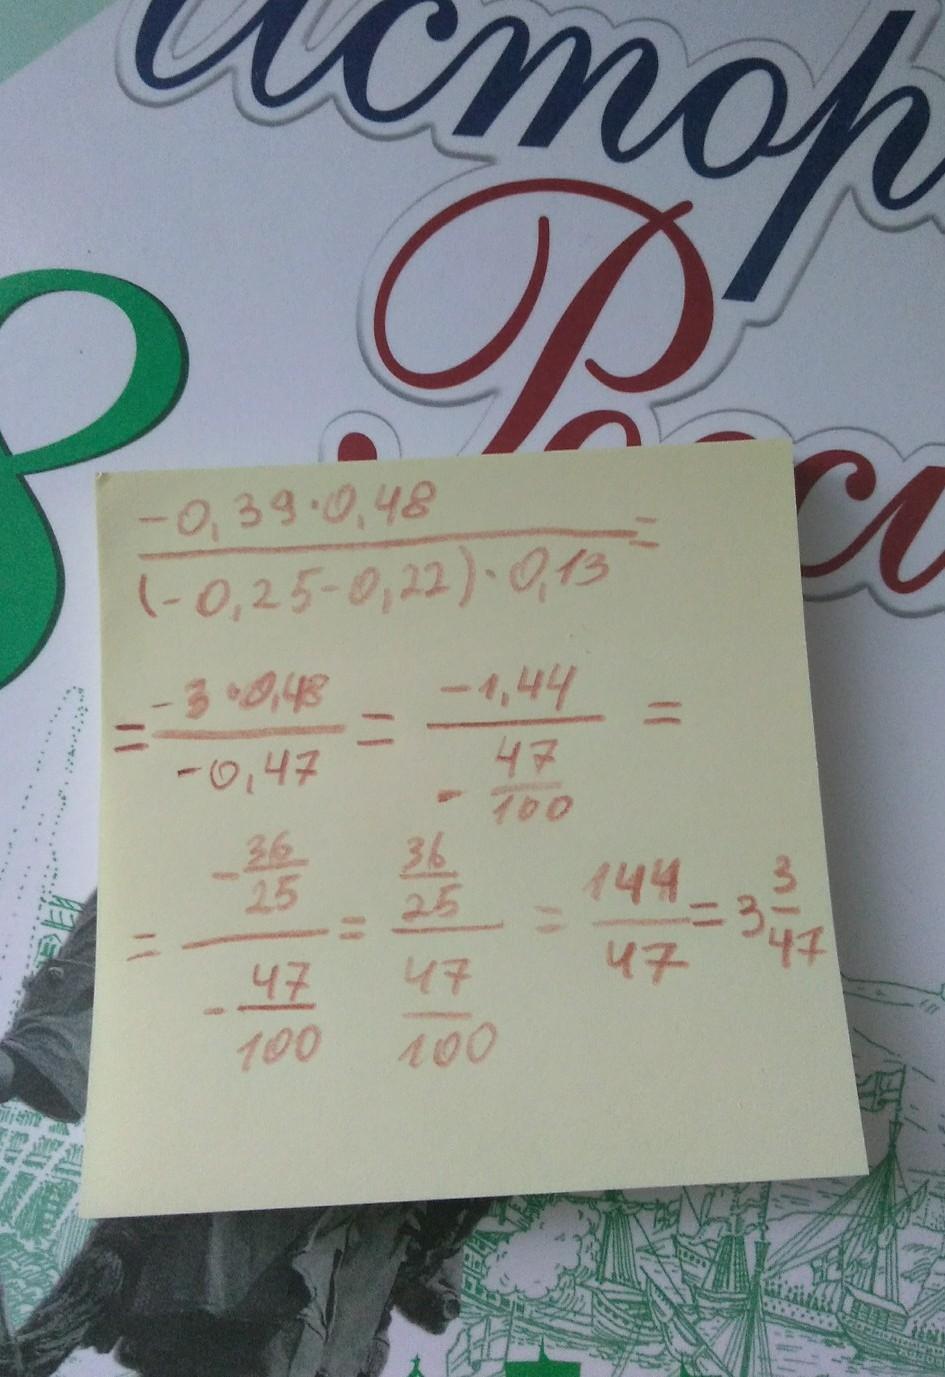 Истор
Росси
8
-0,39·0,48
(-0,25-0,22)·0,13 =
= -3·0,48 / -0,47 = -1,44 / -47/100 =
= -36/25 / -47/100 = 36/25 / 47/100 = 144/47 = 3 3/47